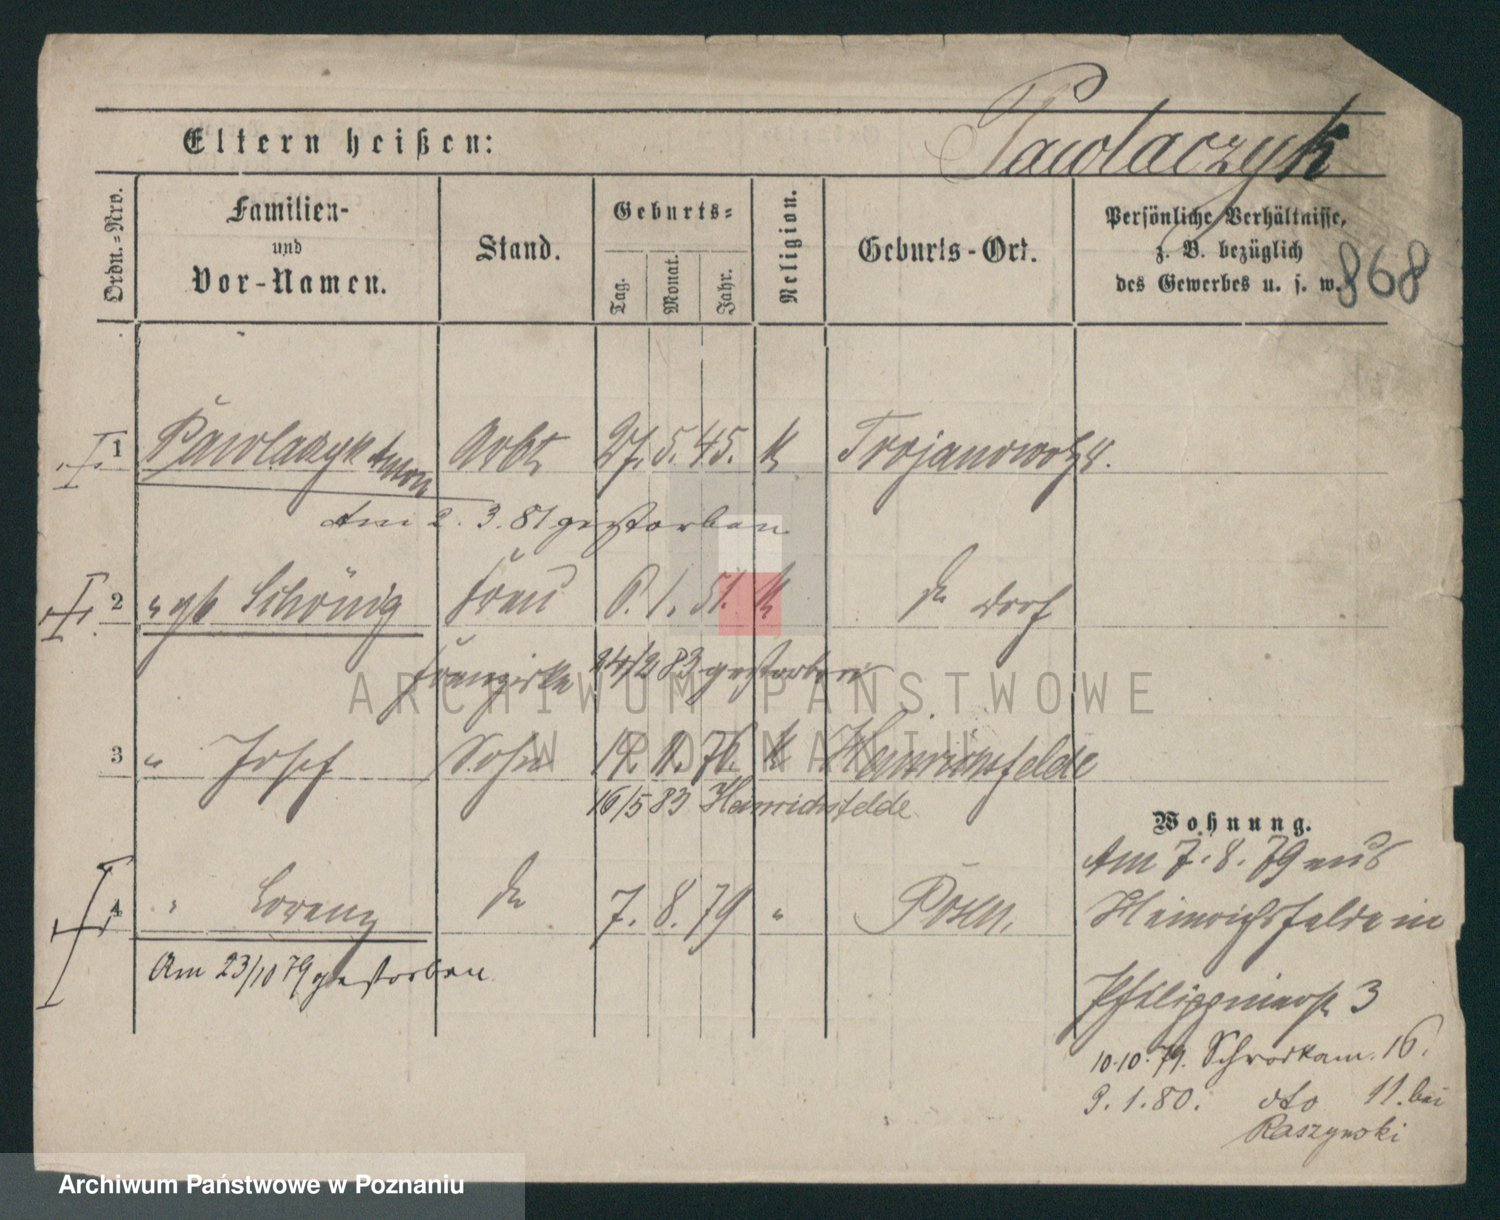 Pawlaczyk
Eltern heißen:
Ordn.-Nro.
Familien-
und
Vor-Namen.
Stand.
Geburts-
Tag.
Monat.
Jahr.
Religion.
Geburts-Ort.
Persönliche Verhältnisse,
z. B. bezüglich
des Gewerbes u. s. w.
868
1 Pawlaczyk Anton Arbt 27. 5. 45. k Trojanowo
Am 2. 3. 81 gestorben
2 " gb Schönig Frau 6. 1. 51. k Dorf
Franziska 24/2 83 gestorben
3 " Josef Sohn 19. 11. 76. k Heinrichsfelde
16/5 83 Heinrichsfelde
4 " Lorenz do 7. 8. 79 " Posen.
Am 23/10 79 gestorben
Wohnung.
Am 7. 8. 79 aus
Heinrichsfelde in
3
10.10.79. Schrodkam. 16.
9. 1. 80. dto 11. bei
Raszynski
ARCHIWUM PAŃSTWOWE
W POZNANIU
Archiwum Państwowe w Poznaniu